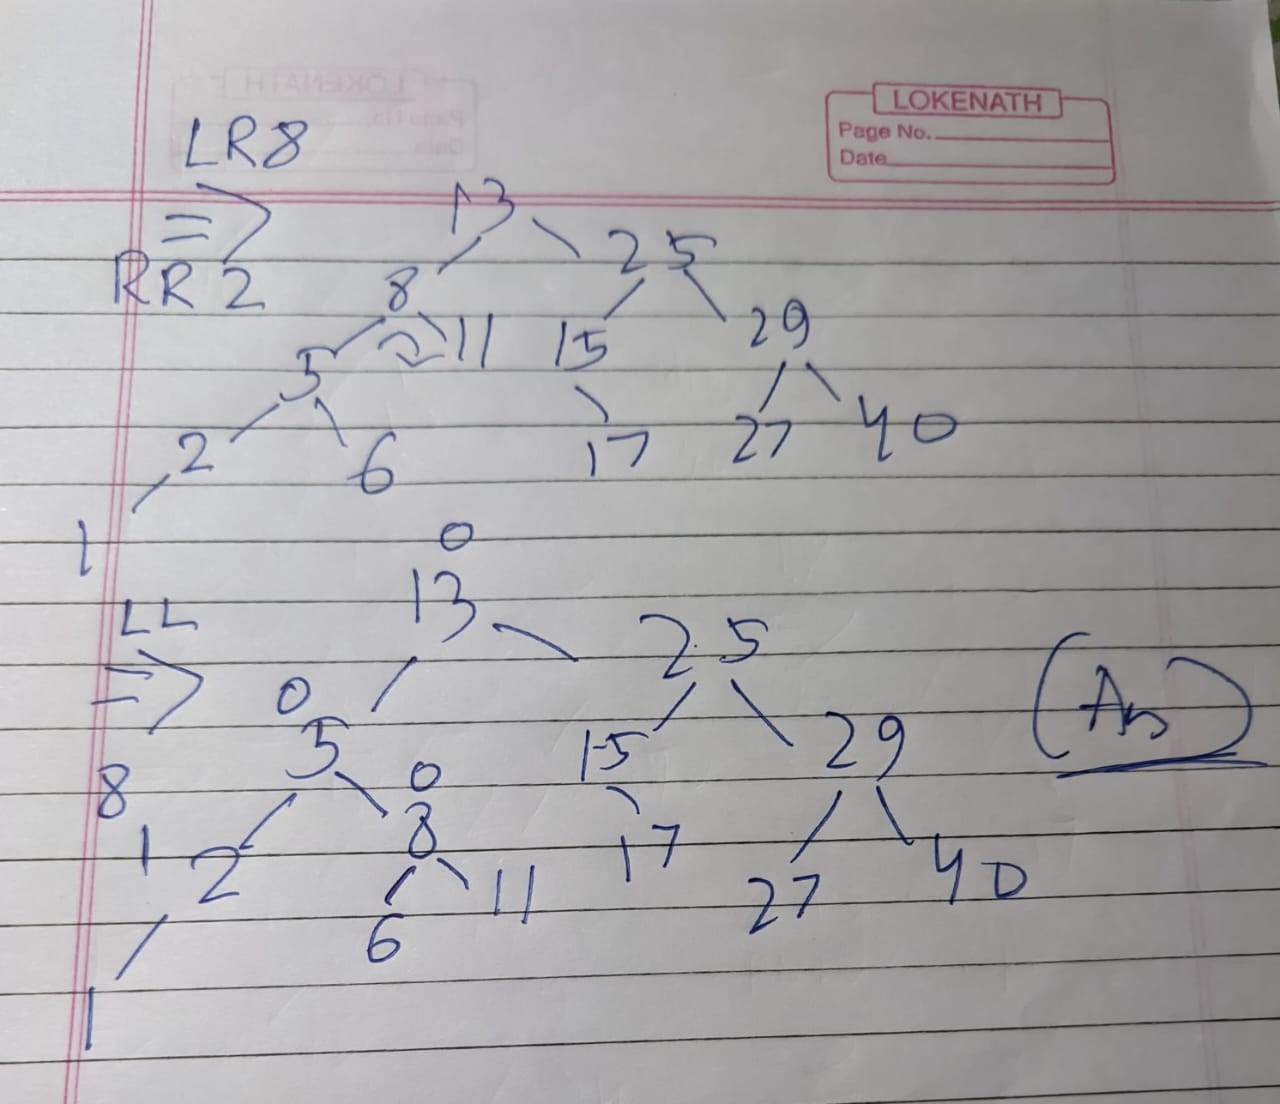 LOKENATH
Page No.
Date
LR8
=>
RR2
13
8 25
5 11 15 29
2 6 17 27 40
1
0
13
LL
=>
8
0
5 25
1
2
0
8 15 29
1 6 11 17 27 40
(Ans)